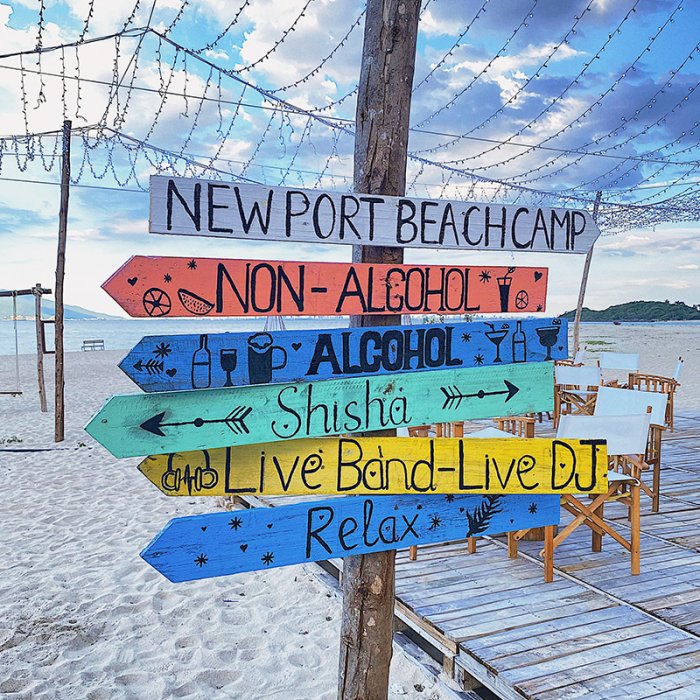 NEW PORT BEACH CAMP
NON-ALGOHOL
ALCOHOL
Shisha
Live Band-Live DJ
Relax